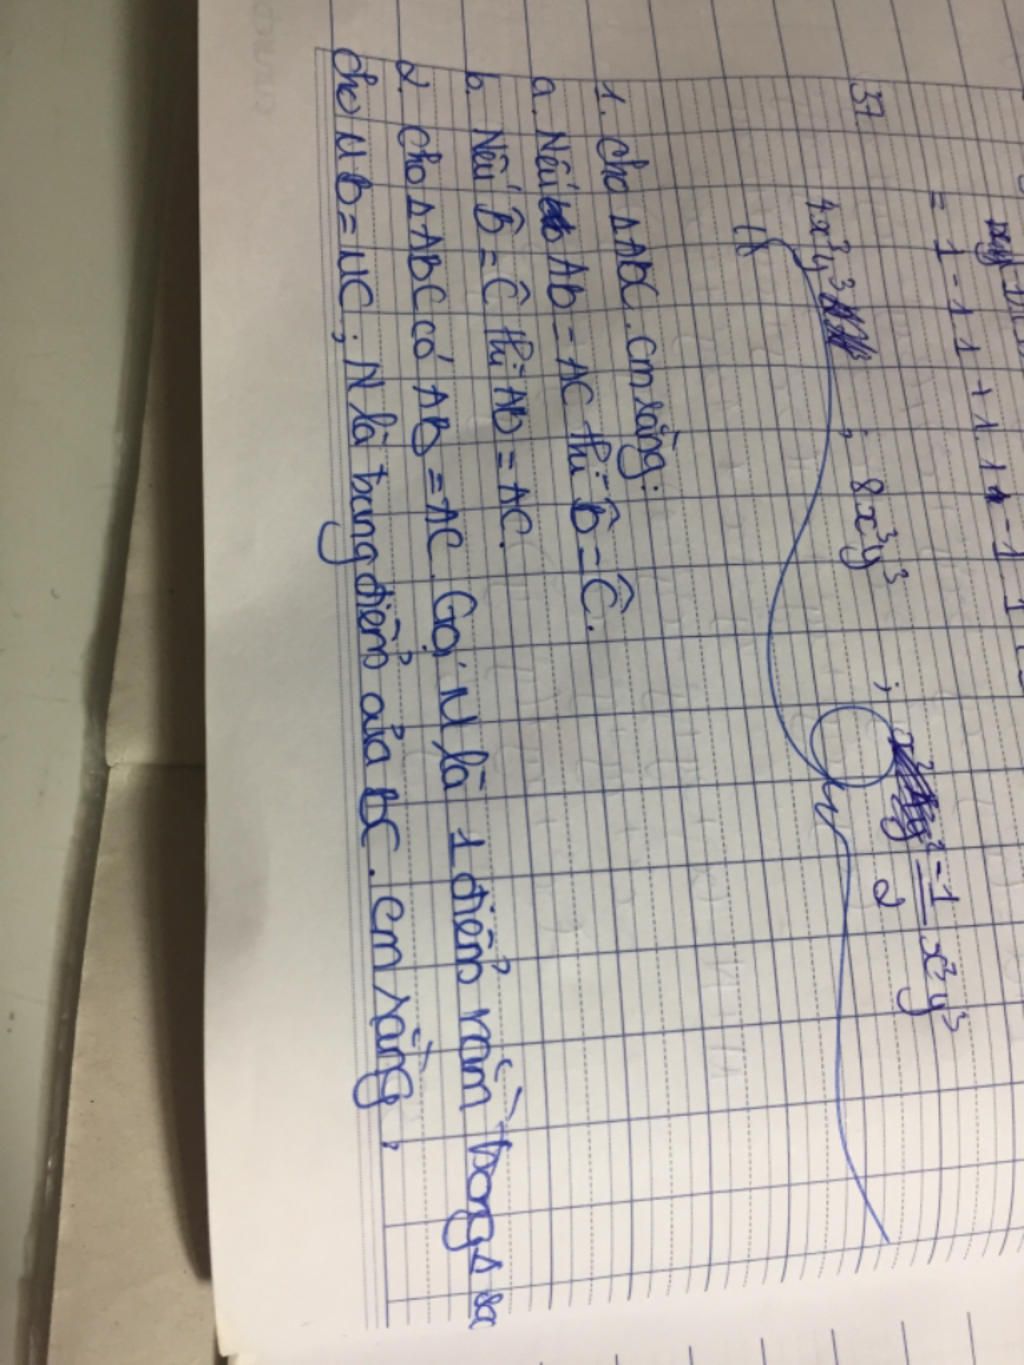 = 1 - 1 1 + 1 . 1 - 1 . 1
37 4x²y³ ; 8x³y³ ; -1/2 x²y³
1. Cho ΔABC. Cm rằng:
a. Nếu AB = AC thì B̂ = Ĉ.
b. Nếu B̂ = Ĉ thì AB = AC.
2. Cho ΔABC có AB = AC. Gọi M là 1 điểm nằm trong Δ sa
cho MB = MC ; N là trung điểm của BC. Cm rằng,